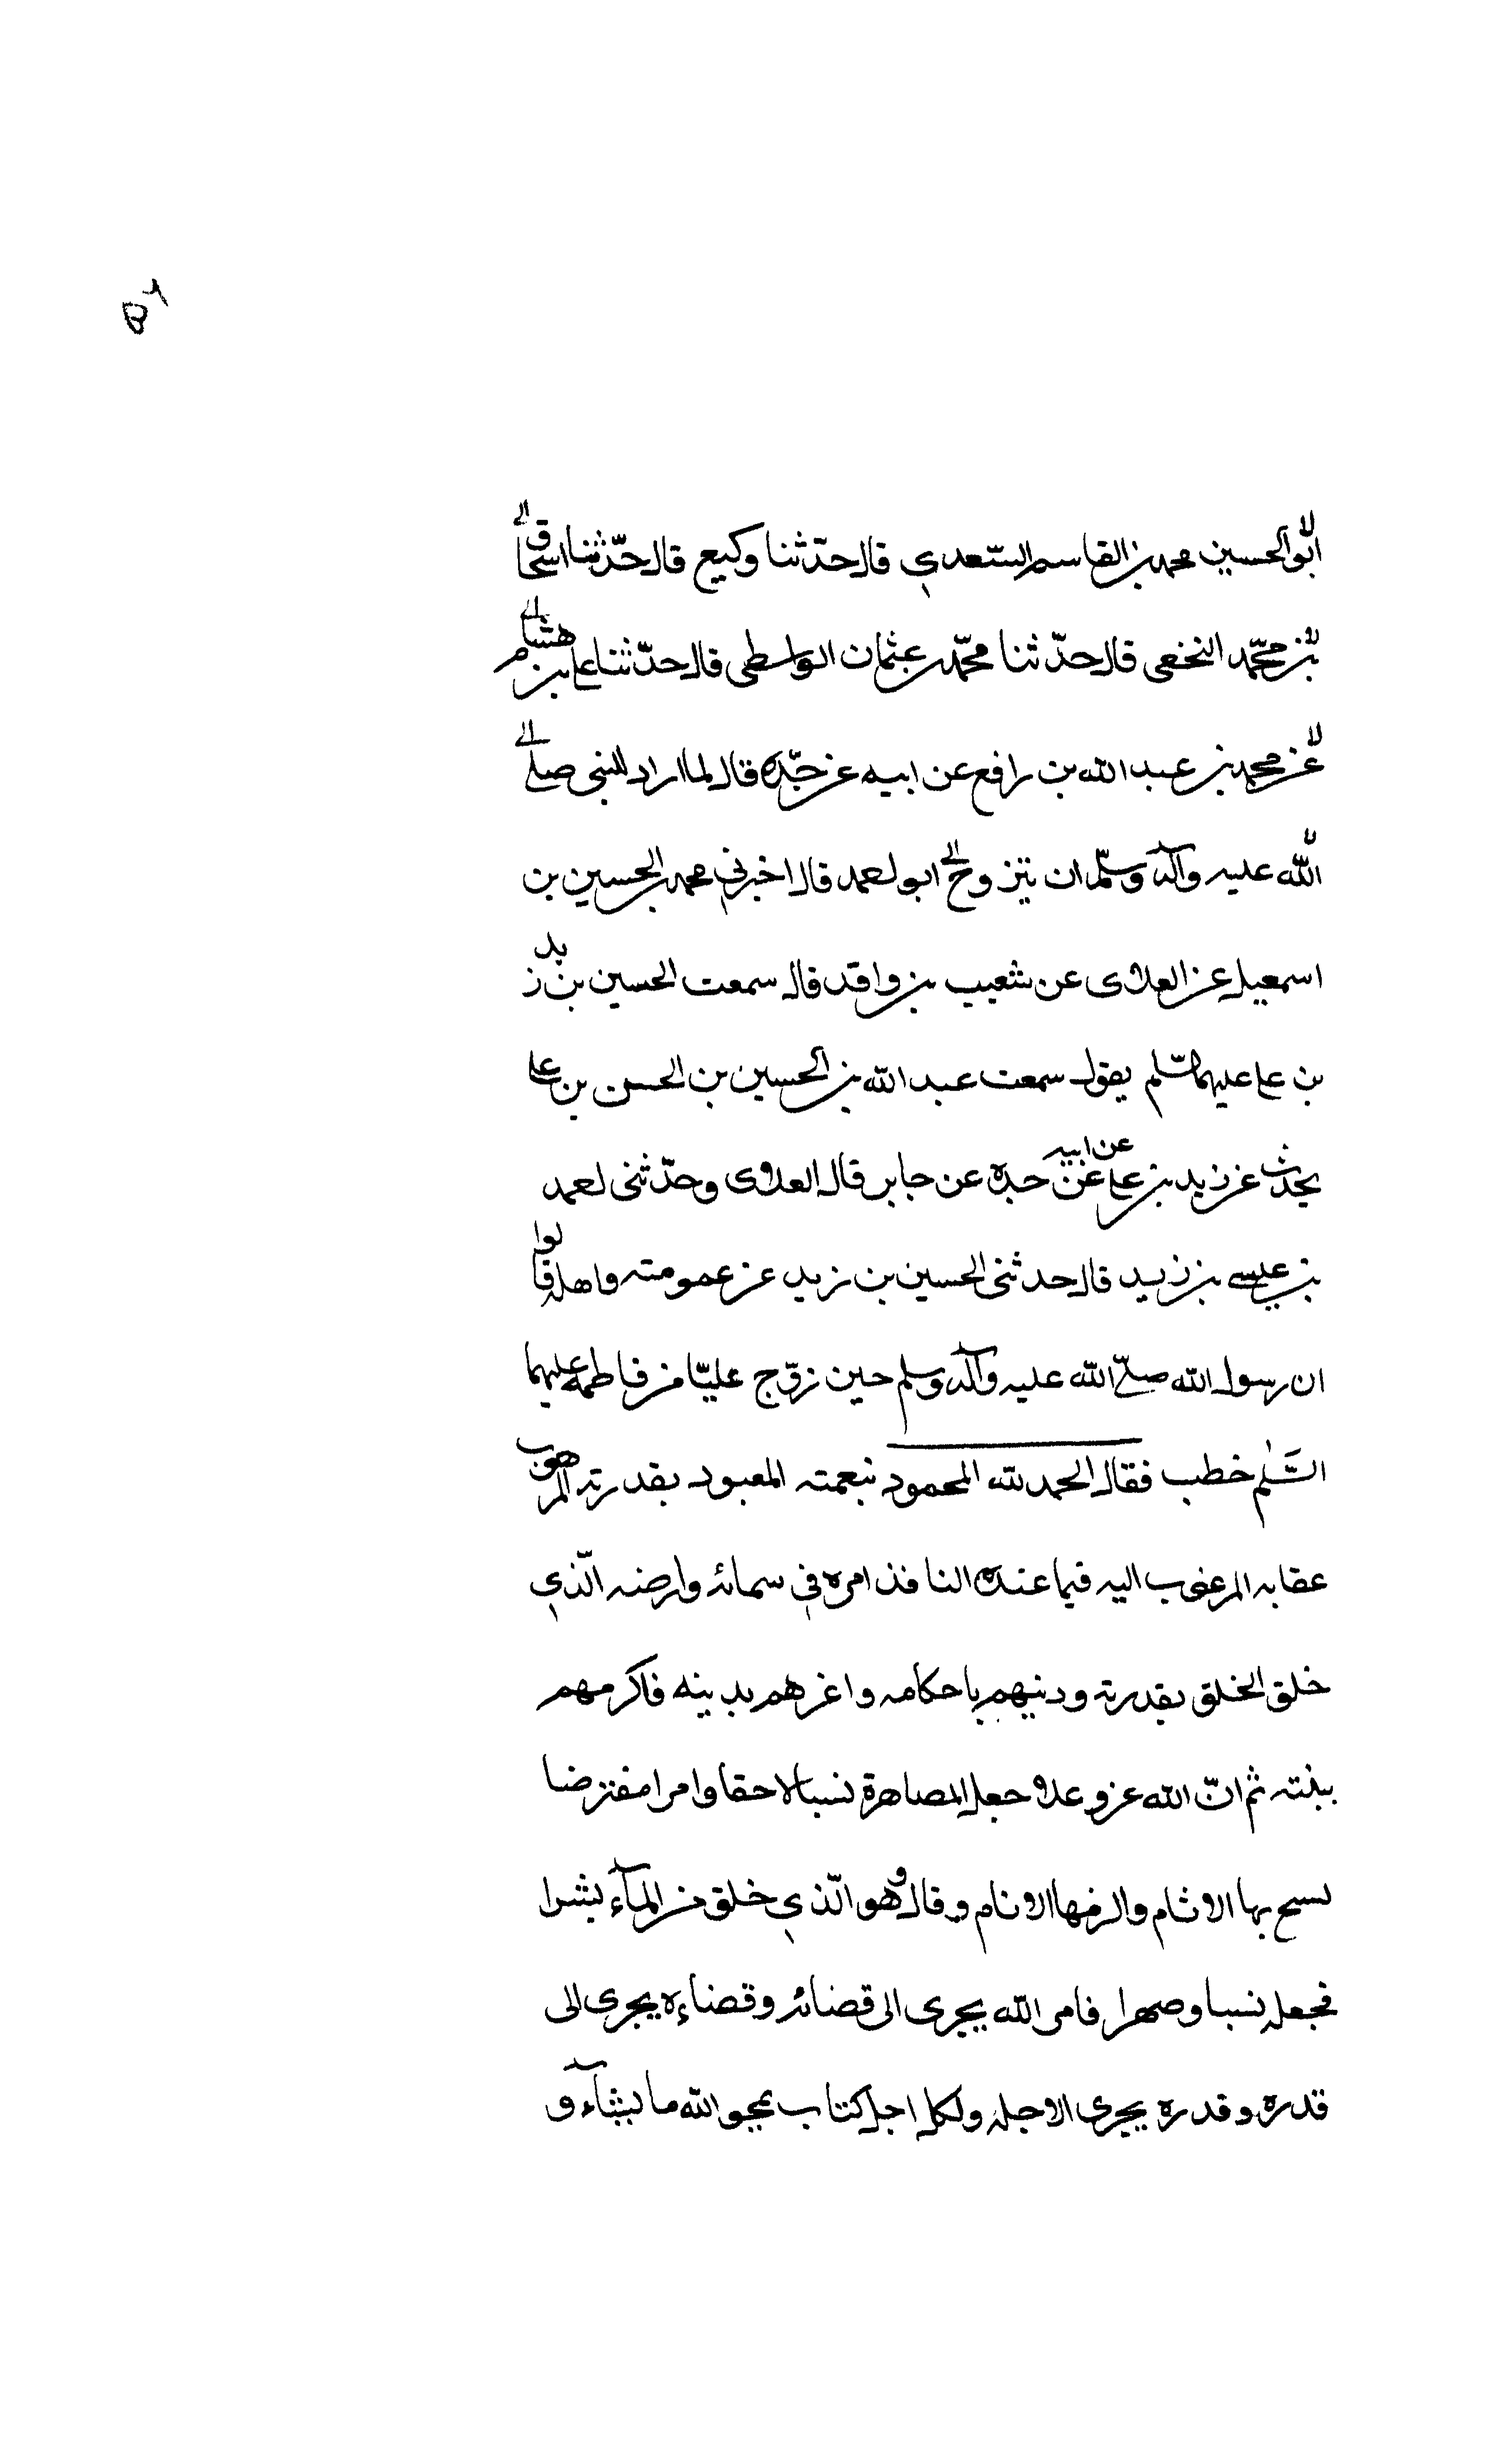 ٥٦
ابو الحسين محمد بن القاسم السّعدي قال حدّثنا وكيع قال حدّثنا اسحاق
بن محمّد النخعي قال حدّثنا محمّد بن عثمان الواسطى قال حدّثنا على بن هشام
عن محمد بن عبد الله بن رافع عن ابيه عن جدّه قال لما اراد النبى صلى
الله عليه وآله وسلّم ان يتزوج ح ابو احمد قال اخبرني محمد بن الحسين بن
اسمعيل عن العلاى عن شعيب بن واقد قال سمعت الحسين بن زيد
بن على عليهما السّلم يقول سمعت عبد الله بن الحسين بن الحسن بن على
يحدث عن زيد بن على عن ابيه عن جده عن جابر قال العلاوى وحدّثنى احمد
بن عيسى بن زيد قال حدثنى الحسين بن زيد عن عمومته واهله قالوا
ان رسول الله صلّى الله عليه وآله وسلم حين زوّج عليّا من فاطمة عليهما
السّلم خطب فقال الحمد لله المحمود بنعمته المعبود بقدرته المرهوب
عقابه المرغوب اليه فيما عنده النافذ امره في سمائه وارضه الّذي
خلق الخلق بقدرته ودنيهم باحكامه واغرهم بدينه فاكرمهم
بنبته ثم انّ الله عز وعلا جعل المصاهرة نسبا لاحقا وامرا مفترضا
نسح بها الاثام والزمها الانام وقال وهو الّذي خلق من المآء بشرا
فجعله نسبا وصهرا فامر الله يجرى الى قضائه وقضاءه يجرى الى
قدره وقدره يجرى الاجله ولكل اجل كتاب يمحو الله ما يشآء و